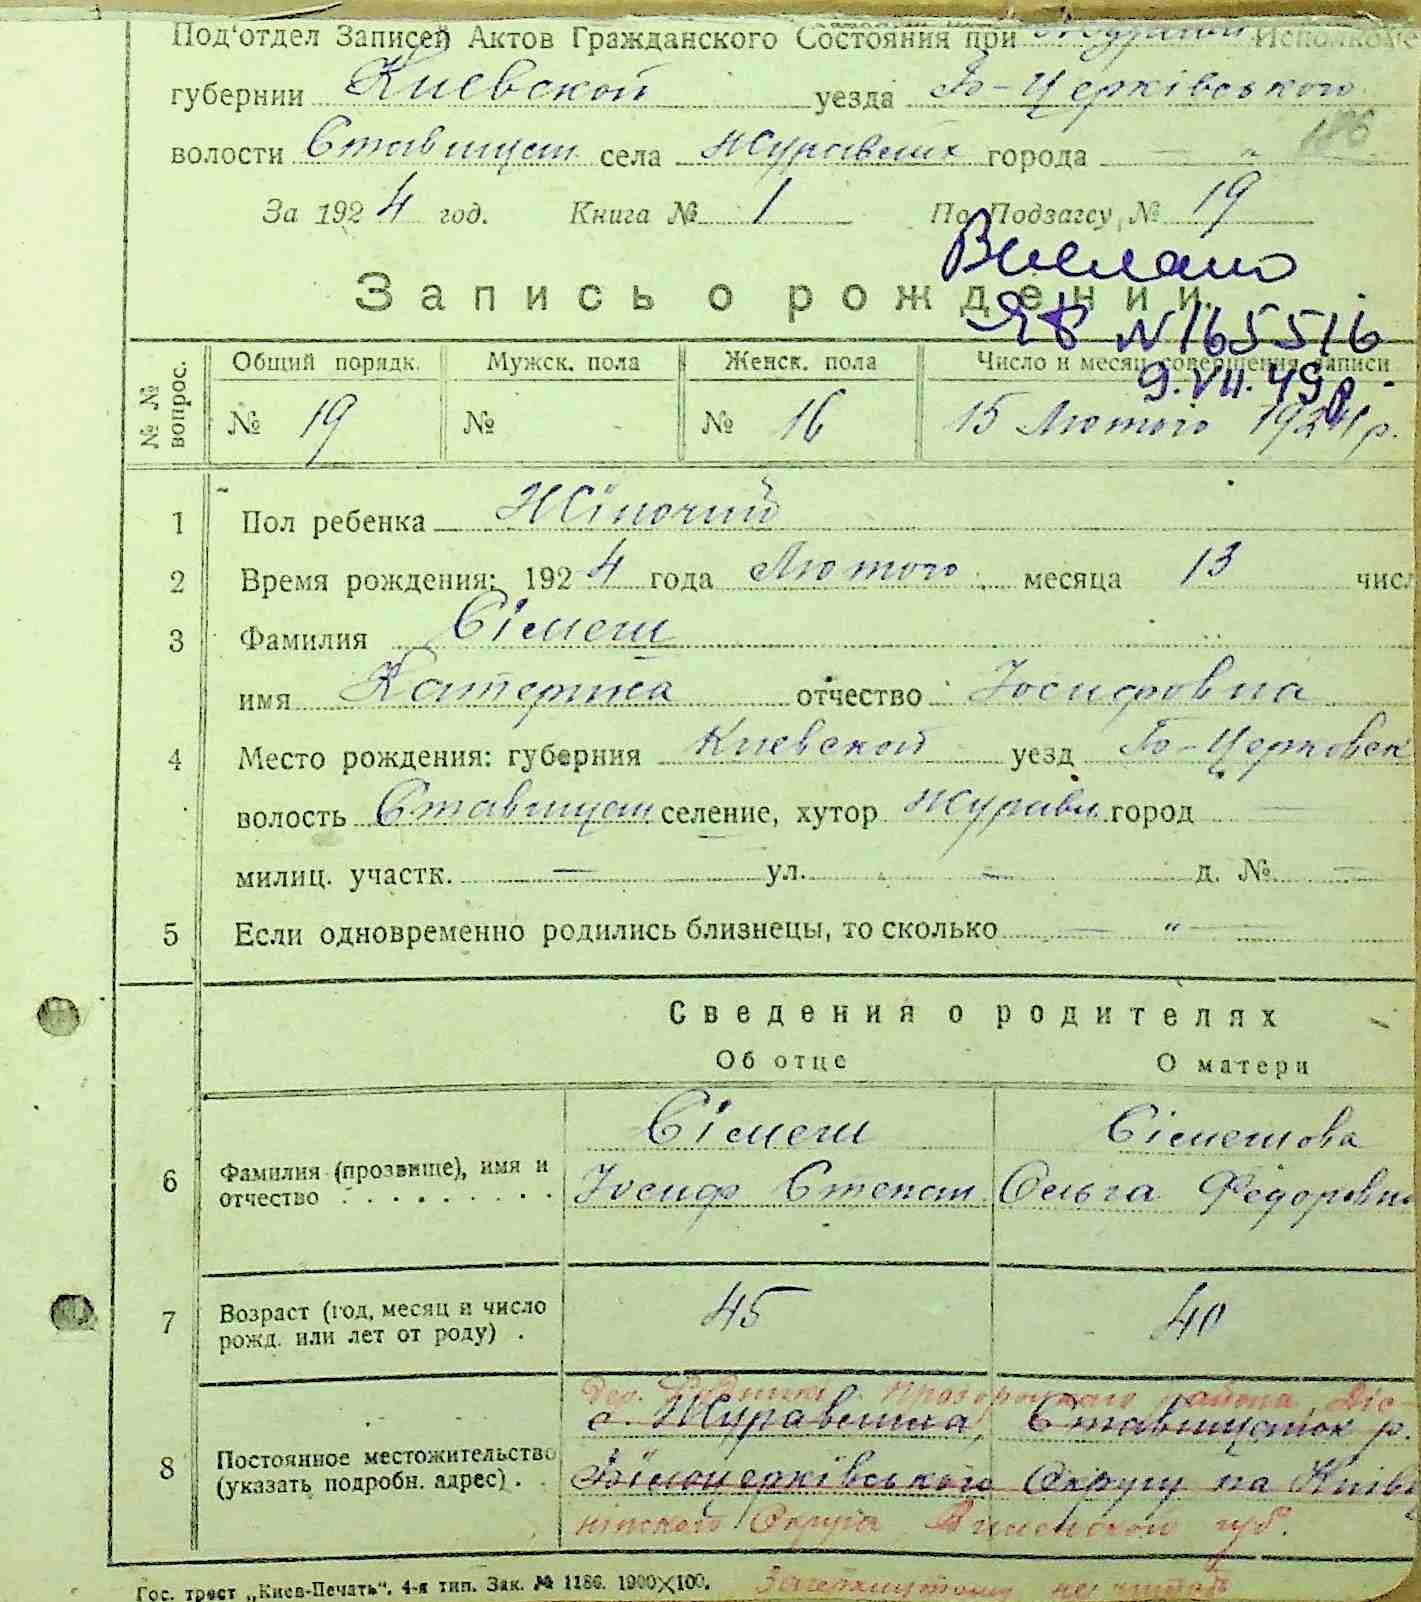 Под'отдел Записей Актов Гражданского Состояния при Исполкоме
губернии Киевской уезда Б-Церківського
волости Ставищан села Журавлиха города — " 186
За 1924 год. Книга № 1 По Подзагсу, № 19
Выслано
Запись о рождении.
ЯБ N 165516
Общий порядк. Мужск. пола Женск. пола Число и месяц совершения записи
9.VII.49р
№ № вопрос.
№ 19 № № 16 15 Лютого 1924 р.
1 Пол ребенка Жіночий
2 Время рождения: 1924 года Лютого месяца 13 числ
3 Фамилия Сімеш
имя Катерина отчество Іосифовна
4 Место рождения: губерния Киевской уезд Б-Церковск
волость Ставищан селение, хутор Журавл. город —
милиц. участк. — ул. — д. № —
5 Если одновременно родились близнецы, то сколько — " —
Сведения о родителях
Об отце О матери
Сімеш Сімешова
6 Фамилия (прозвище), имя и
отчество Іосиф Степан. Ольга Федоровна
7 Возраст (год, месяц и число
рожд. или лет от роду) . 45 40
дер. района, Діс-
с. Журавлиха, Ставищанск р.
8 Постоянное местожительство
(указать подробн. адрес) . . Білоцерківського Округу на Київ
Округа губ.
Гос. трест „Киев-Печать". 4-я тип. Зак. № 1186. 1900×100.
не читать